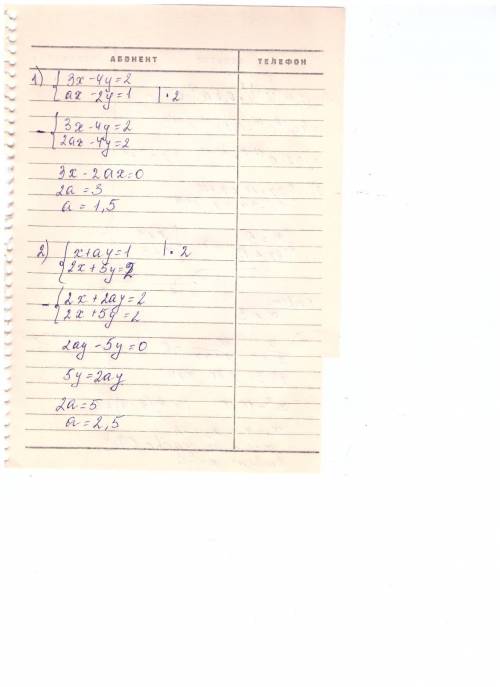 АБОНЕНТ ТЕЛЕФОН
1) { 3x - 4y = 2
ax - 2y = 1 | · 2
- { 3x - 4y = 2
2ax - 4y = 2
3x - 2ax = 0
2a = 3
a = 1,5
2) { x + ay = 1 | · 2
2x + 5y = 2
- { 2x + 2ay = 2
2x + 5y = 2
2ay - 5y = 0
5y = 2ay
2a = 5
a = 2,5